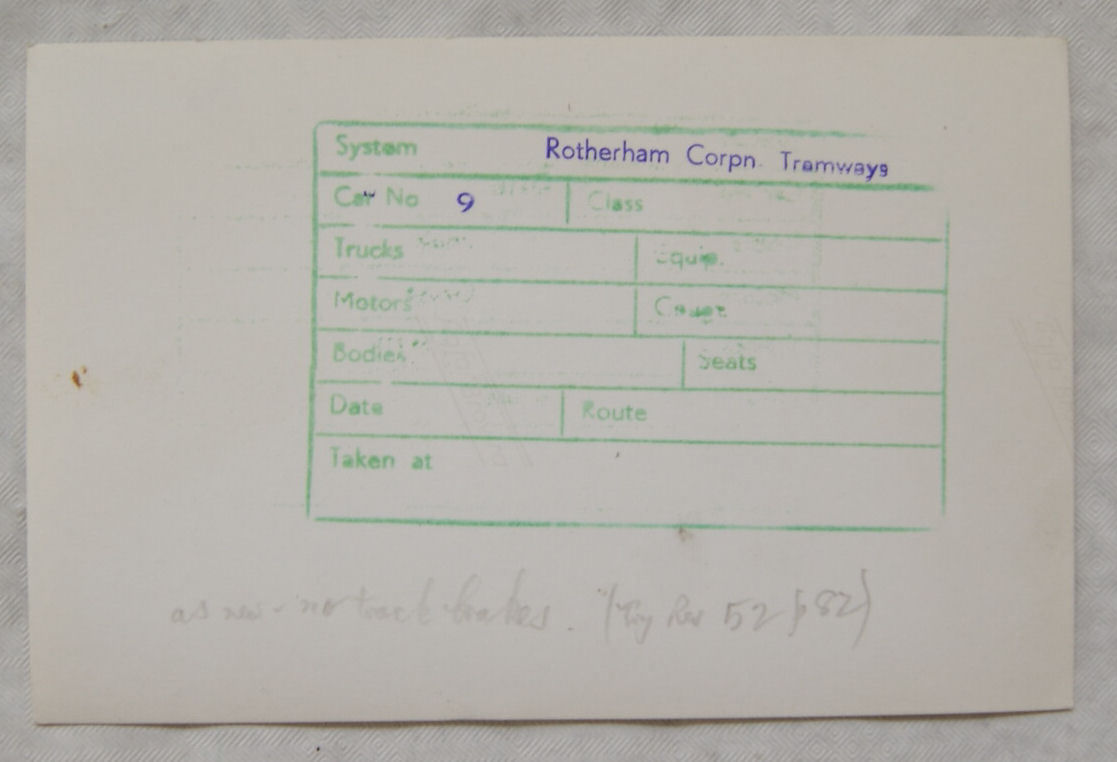 System Rotherham Corpn. Tramways
Car No 9 Class
Trucks Equip.
Motors Gauge
Bodies Seats
Date Route
Taken at
as new - no track brakes. (Rev 52 p82)